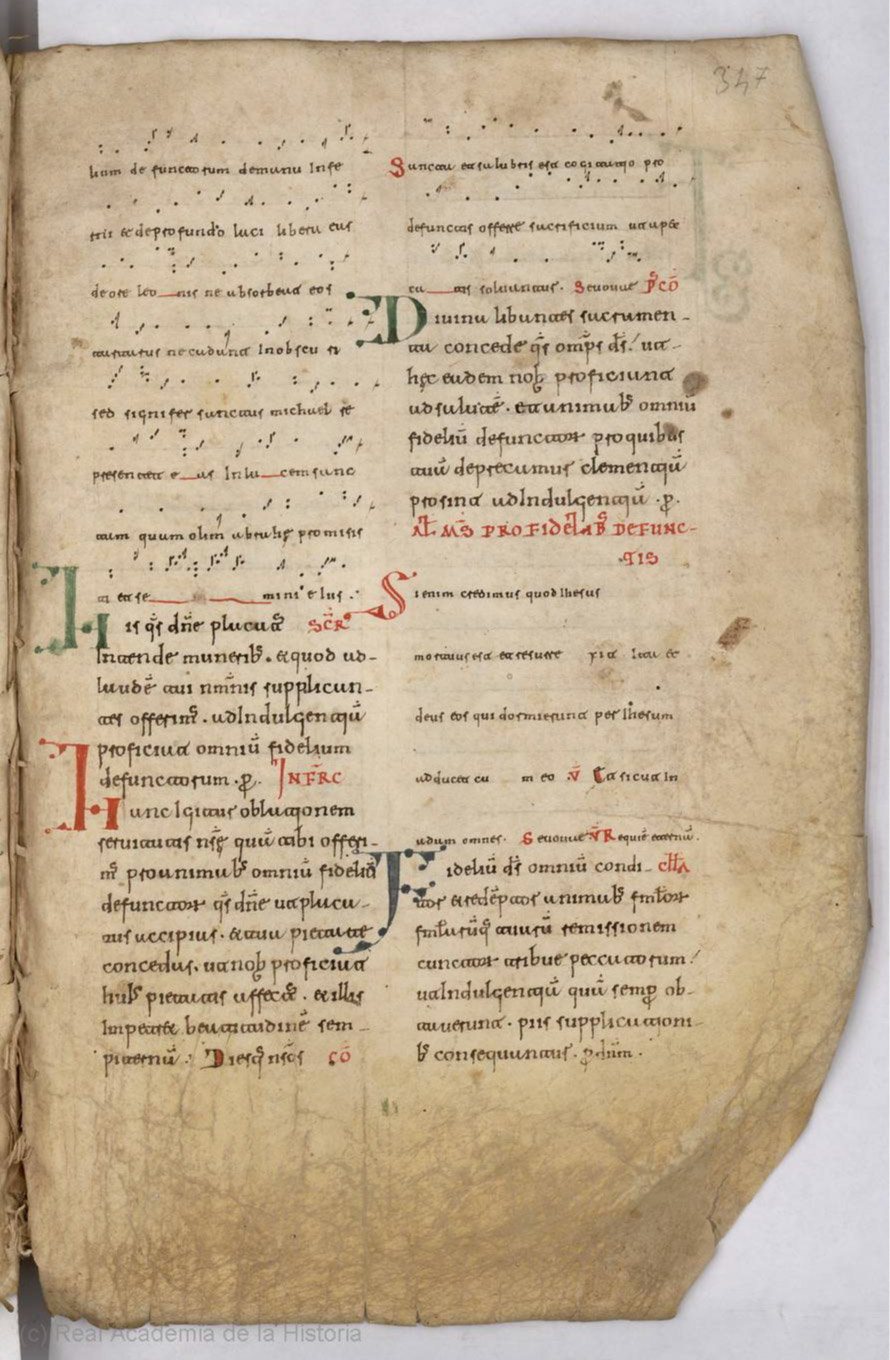 347
lium defunctorum de manu Infe
rni et deprofundo laci libera eus
de ore leo nis ne absorbeat eos
tartarus ne cadant In obscu ri
sed signifer sanctus michael re
presentet e us In lu cem sanc
tam quam olim abrahę promisis
ti et se mini eius
His q̄s dñe placat̄ SCR̄
Intende munerib; et quod ad
laudē tui nm̄nis supplican
tes offerim; ad Indulgentiā
proficiat omniū fidelium
defunctorum. p̱. INFRC
Hanc Igitur oblationem
seruitutis nrę quā tibi offeri
m; pro animab; omniū fideliū
defunctor̄ q̄s dñe ut placa
tus accipias. et tua pietate
concedas. ut nob proficiat
huīs pietatis affect̄. et illis
Impetret beatitudinē sem
piternā. Diesq; nr̄os CŌ
Sancta et salubris est cogitatio pro
defunctis offerre sacrificium ut a pec
ca tis soluantur. Seuouae PꝰCŌ
Diuina libantes sacramen
ta concede q̄s omp̄s d̄s ut
hęc eadem nob proficiant
ad salutē. et animab; omniū
fideliū defunctor̄ pro quibus
tuā deprecamus clementiā
prosint ad Indulgentiā. p̱.
AL̄ MS̄ PRO FIDELIB; DEFUNC
TIS
Si enim credimus quod Ihesus
mortuus est et resurre xit Ita et
deus eos qui dormierunt per Ihesum
adducet cu m eo V̄ Et sicut In
adam omnes. Seuouae V̄ Requiē eternā.
Fideliū d̄s omniū condi CLLĀ
tor et redēptor animab; fml̄or̄
fml̄arūq; tuarū remissionem
cunctor̄ tribue peccatorum
ut Indulgentiā quā semp̱ ob
tauerunt. piis supplicationi
b; consequantur. p̱ dn̄m.
(c) Real Academia de la Historia